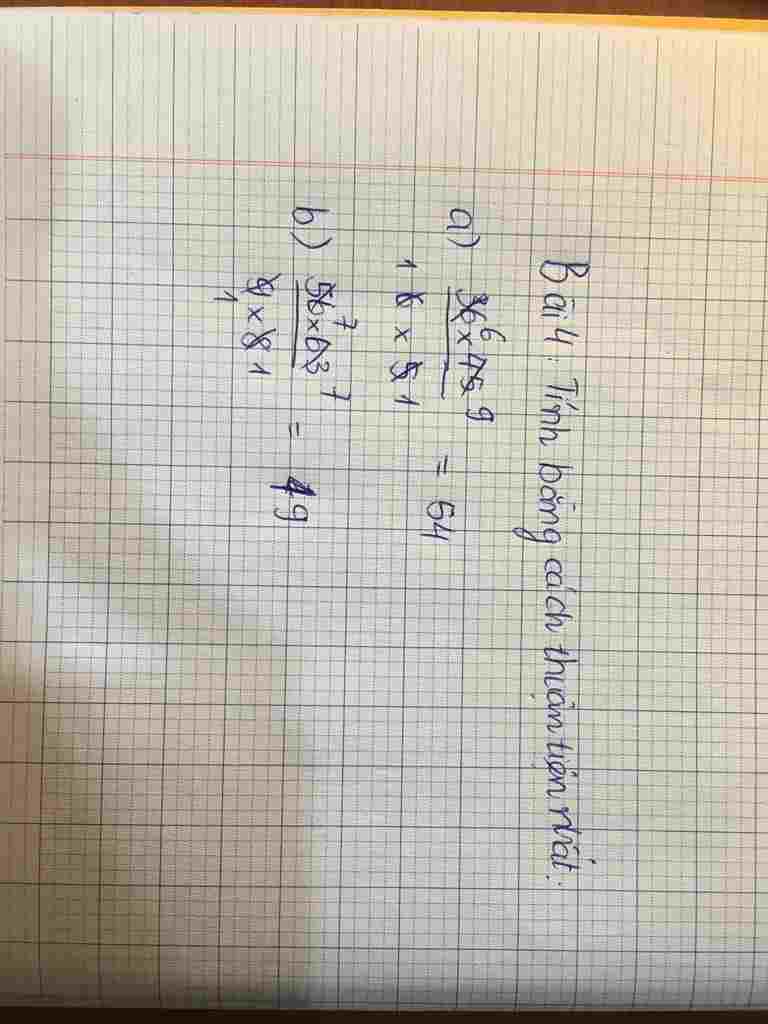 Bài 4: Tính bằng cách thuận tiện nhất:
a) 36 6 × 45 9 = 54
1 6 × 5 1
b) 56 7 × 63 7 = 49
9 1 × 8 1